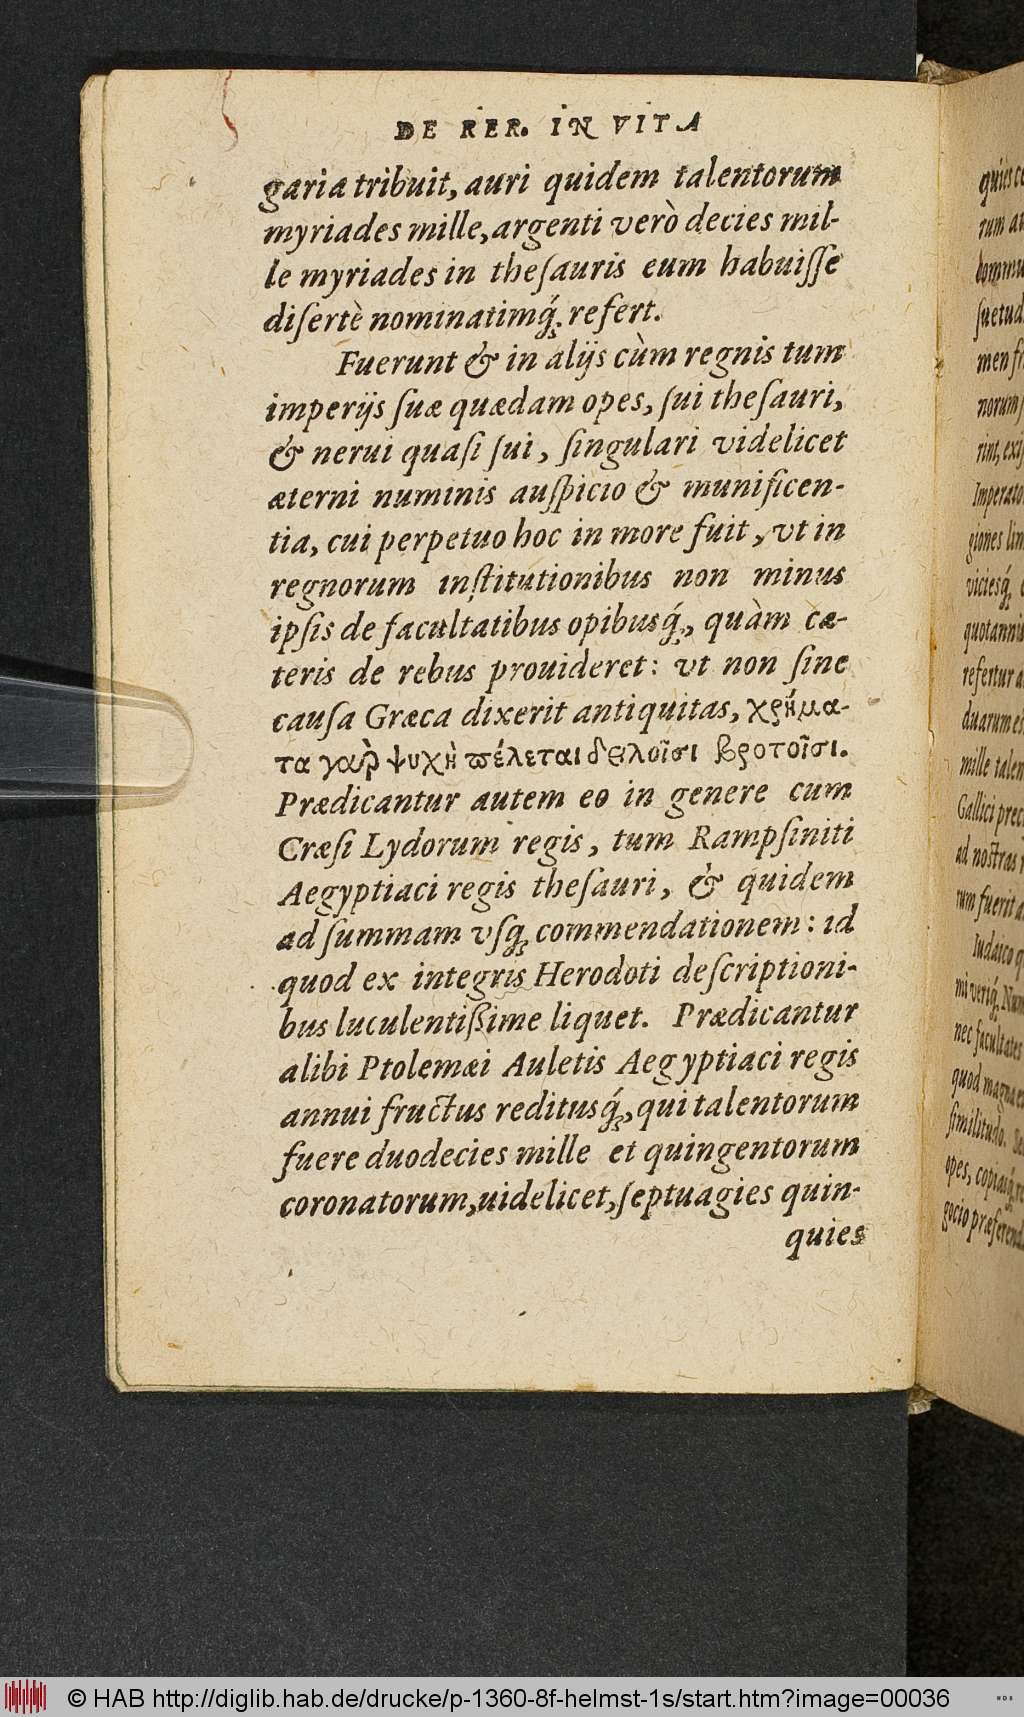 DE RER. IN VITA
garia tribuit, auri quidem talentorum
myriades mille, argenti verò decies mil-
le myriades in theſauris eum habuiſſe
diſertè nominatimq́; refert.
Fuerunt & in alijs cùm regnis tum
imperijs ſuæ quædam opes, ſui theſauri,
& nerui quaſi ſui, ſingulari videlicet
æterni numinis auſpicio & munificen-
tia, cui perpetuo hoc in more fuit, vt in
regnorum inſtitutionibus non minus
ipſis de facultatibus opibusq́;, quàm cæ-
teris de rebus prouideret: vt non ſine
cauſa Græca dixerit antiquitas, χρήμα-
τα γὰρ ψυχὴ πέλεται δειλοῖσι βροτοῖσι.
Prædicantur autem eo in genere cum
Cræſi Lydorum regis, tum Rampſiniti
Aegyptiaci regis theſauri, & quidem
ad ſummam vſq; commendationem: id
quod ex integris Herodoti deſcriptioni-
bus luculentißime liquet. Prædicantur
alibi Ptolemæi Auletis Aegyptiaci regis
annui fructus reditusq́;, qui talentorum
fuere duodecies mille et quingentorum
coronatorum, uidelicet, ſeptuagies quin-
quies
quies
rum
ſuetud
men
norum
Imperato
giones
viciesq́;
quotanni
refertur
duarum
mille talen
Gallici
ad noſtras
rum fuerit
Iudaico
ni verq́; Num
nec facultates
quod
ſimilitudo.
opes, copiasq́;
gocio præferend
© HAB http://diglib.hab.de/drucke/p-1360-8f-helmst-1s/start.htm?image=00036